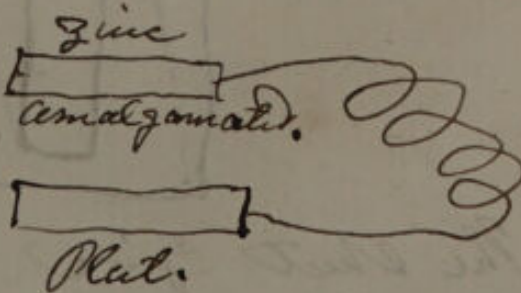 Zinc
amalgamated.
Plat.